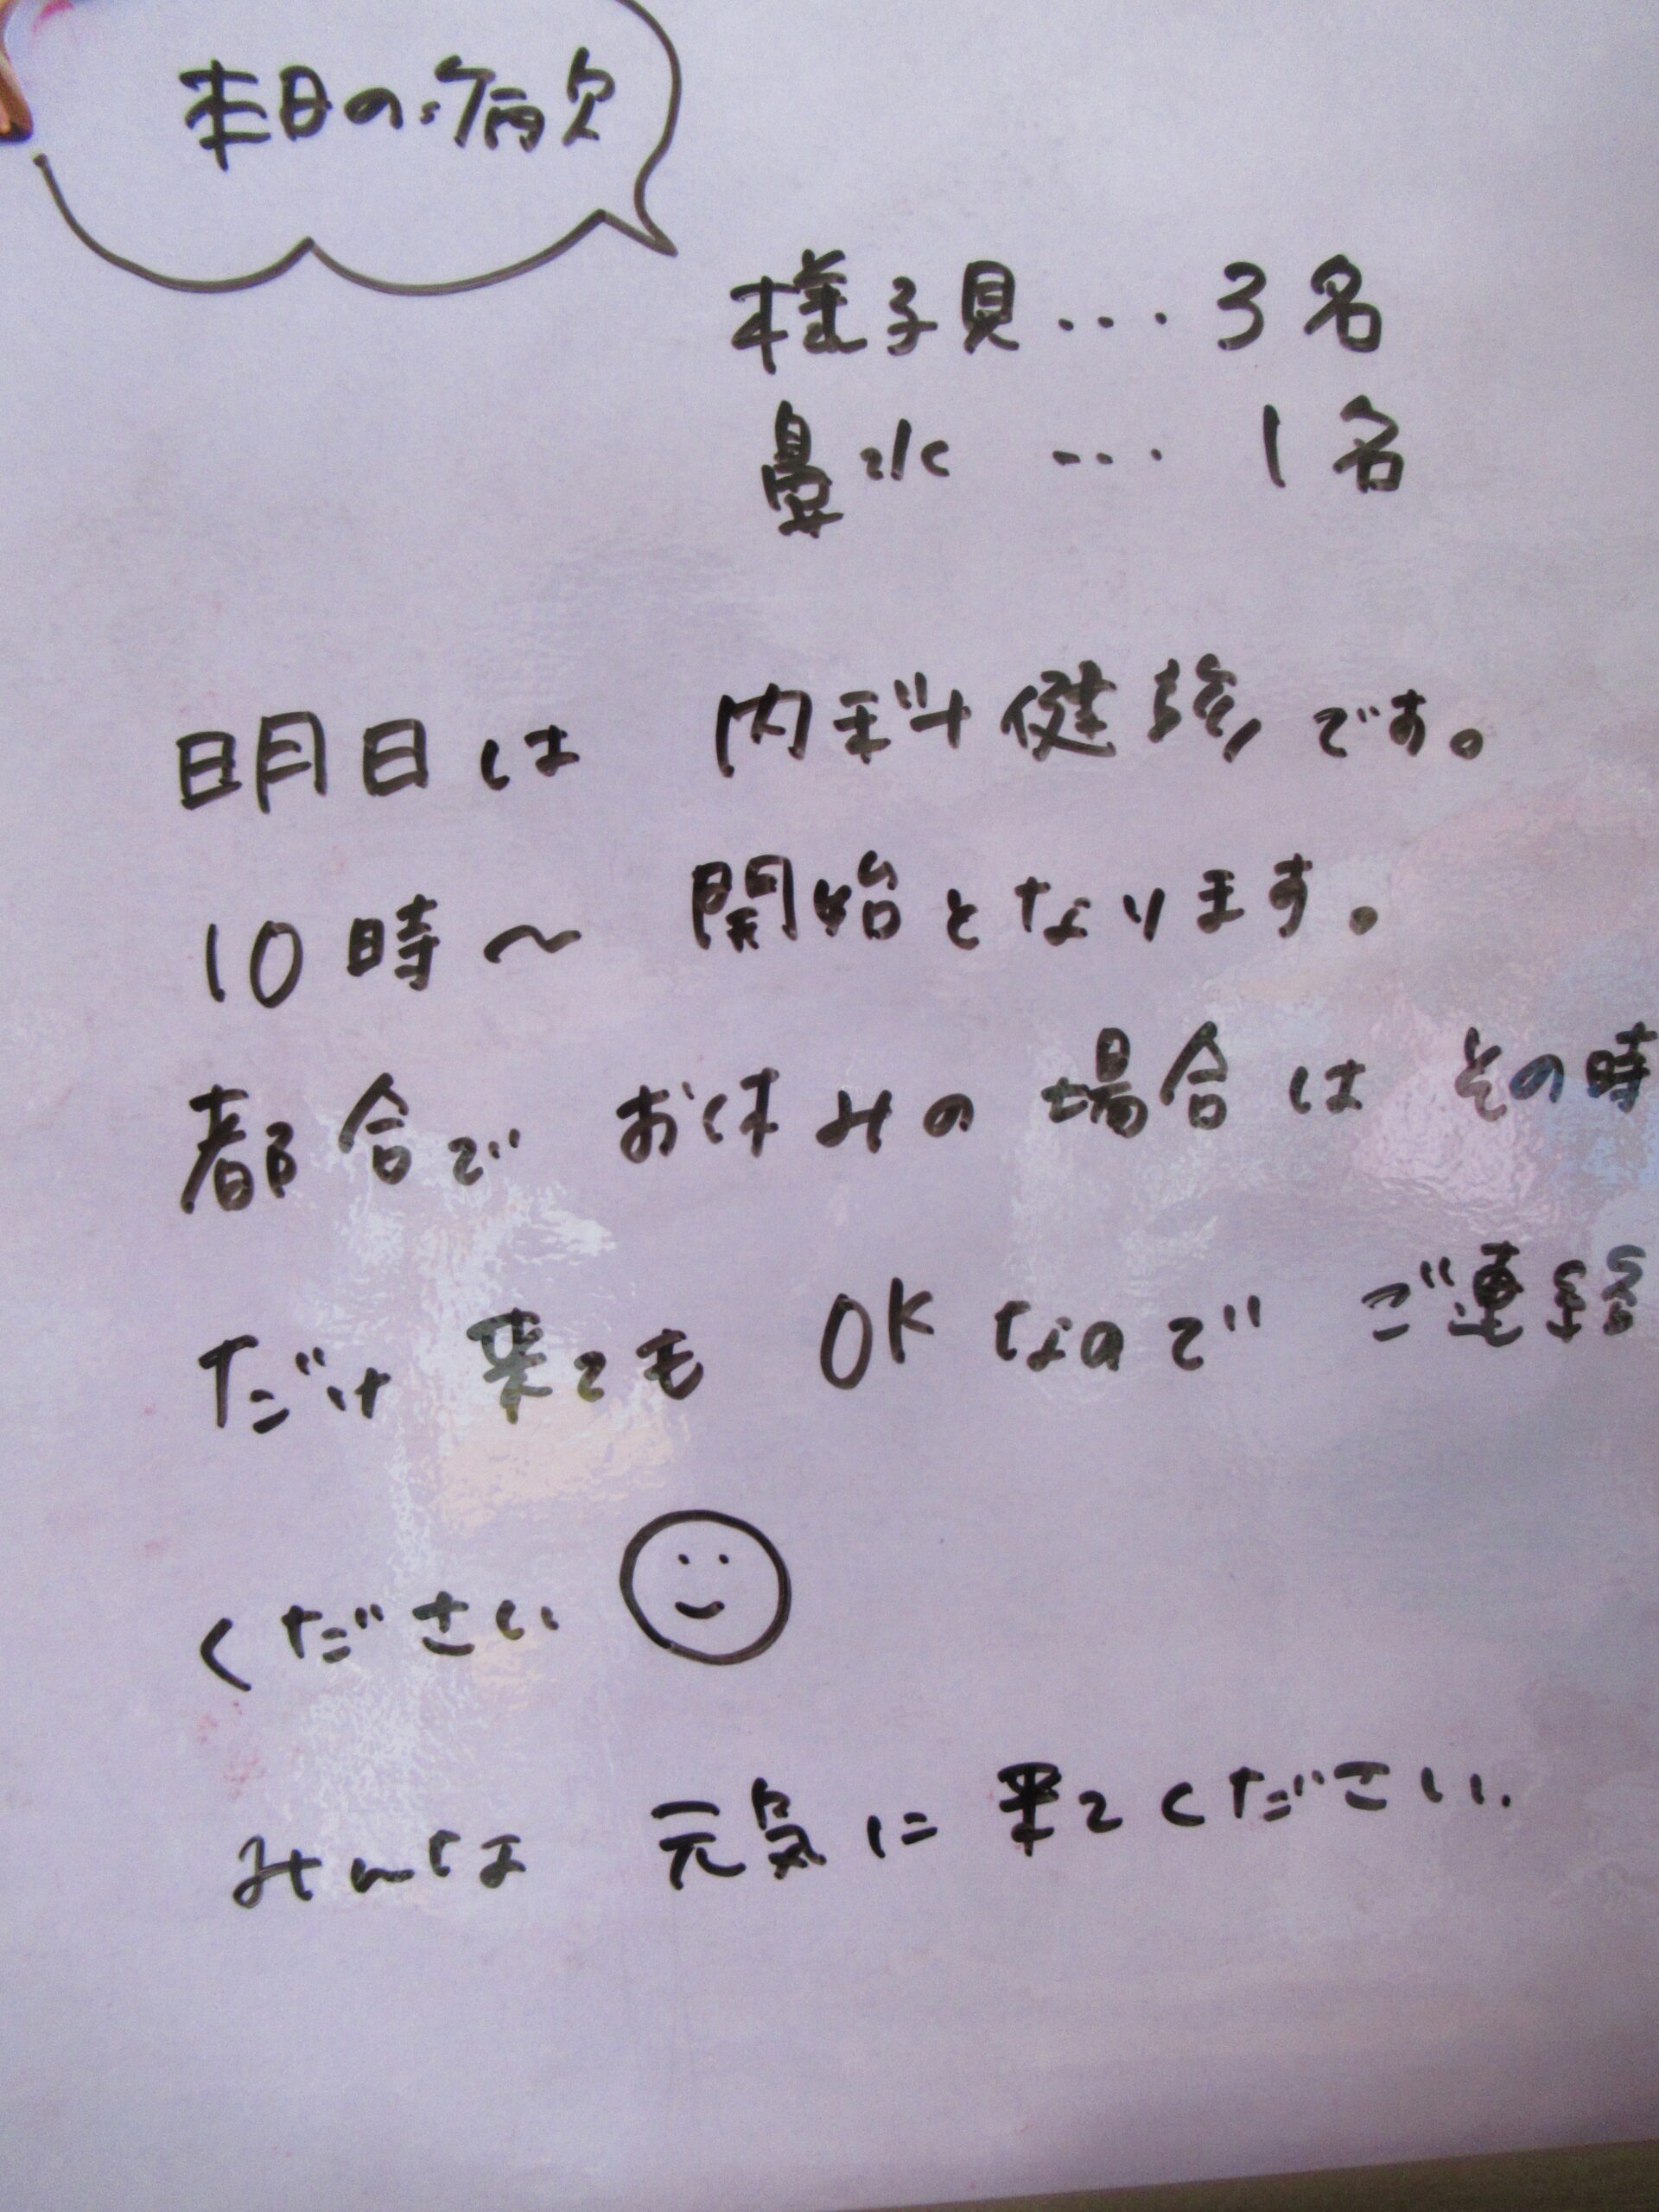 本日の病欠
様子見・・・3名
鼻水・・・1名
明日は 内科健診です。
10時～ 開始となります。
都合で お休みの 場合は その時
だけ 来ても OKなので ご連絡
ください
みんな 元気に 来てください.